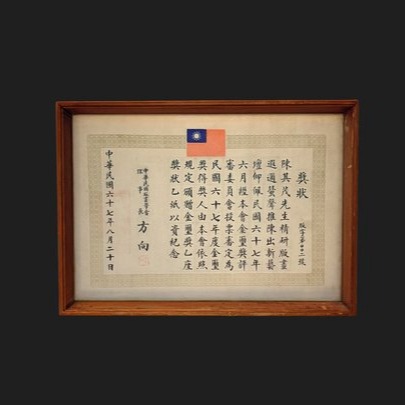 獎狀
版字第〇〇二號
陳其茂先生精研版畫
遐邇蜚聲推陳出新藝
壇佩民國六十七年
六月經本會金璽獎評
審委員會投票審定為
民國六十七年度金璽
獎得獎人由本會依照
規定頒贈金璽獎乙座
獎狀乙紙以資紀念
中華民國版畫學會
理事長 方向
中華民國六十七年八月二十日